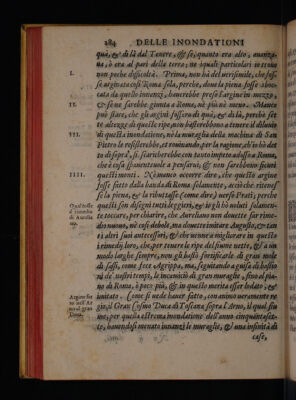 284 DELLE INONDATIONI
quà, & di là dal Teuere, & se, quanto era alto, auanza-
ua, ò era al pari della terra; ne iquali particolari io trouo
I. non poche difficoltà. Prima, non hà del uerisimile, che fos-
se arginata così Roma sola, perche, douela piena fosse sboc-
cata da quello innanzi, hauerebbe preso l'argine in mezzo,
II. & se ne sarebbe giunta à Roma, nè più nè meno. Manco
può stare, che gli argini fossero di quà, & di là, perche set-
te altezze di quelle ripe, non basterebbono a tenere il diluuio
III. di questa inondatione, nè la muraglia della machina di San
Pietro le resisterebbe, et rouinando, per la ragione, ch'io hò det
to di sopra, si scaricherebbe con tanto impeto adosso a Roma,
che è cosa spauenteuole a pensarsi, & non sarebbono sicuri
IIII. questi monti. Nè manco occorre dire, che questo argine
fosse fatto dalla banda di Roma solamente, acciò che ritenes-
se la piena, & la ributtasse (come dire) uerso Prati; perche
questi son disegni tutti leggieri, & io gli hò uoluti solamen-
te toccare, per chiarire, che Aureliano non douette far rime-
dio nuouo, nè così debole, ma douette imitare Augusto, & tan
ti altri suoi antecessori, & che ne uenne migliorare in questo
i rimedij loro, che, per tenere le ripe del fiume nette, & a un
modo larghe sempre, non gli bastò fortificarle di gran mole
di sassi, come fece Agrippa, ma, seguitando a guisa di bastio
ni de' nostri tempi, le incamiciò di gran muraglia fino al pia-
no di Roma, ò poco più, & in questo merita esser lodato, &
imitato. Come si uede hauer fatto, con animo ueramente re
gio, il Gran Cosmo Duca di Toscana sopra l'Arno, il qual fiu
me, per quella estrema inondatione dell'anno cinquantaset-
te, hauendosi menato innanzi le muraglie, & una infinità di
case,
Argine fat
to nell'Ar
no al gran
Duca.